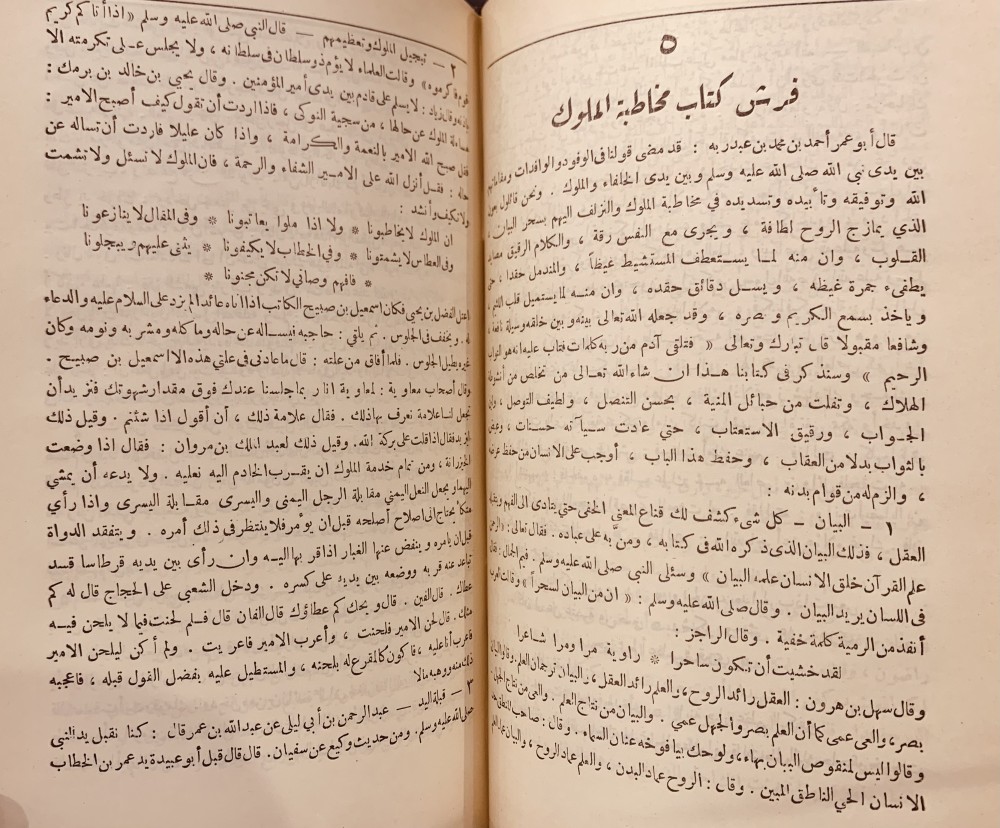 ٥
فرش كتاب مخاطبة الملوك
قال أبو عمر أحمد بن محمد بن عبد ربه : قد مضى قولنا فى الوفود والوافدات ومقاماتهم
بين يدى نبى الله صلى الله عليه وسلم وبين يدى الخلفاء والملوك . ونحن قائلون بعون
الله وتوفيقه وتأييده وتسديده في مخاطبة الملوك والتزلف اليهم بسحر البيان ،
الذي يمازج الروح لطافة ، ويجرى مع النفس رقة ، والكلام الرقيق مصايد
القلوب ، وان منه لما يستعطف المستشيط غيظاً ، والمندمل حقدا ، حتى
يطفىء جمرة غيظه ، ويسل دقائق حقده ، وان منه لما يستميل قلب اللئيم ،
وياخذ بسمع الكريم وبصره ، وقد جعله الله تعالى بينه وبين خلقه وسيلة نافعة ،
وشافعا مقبولا قال تبارك وتعالى « فتلقى آدم من ربه كلمات فتاب عليه انه هو التواب
الرحيم » وسنذكر فى كتابنا هذا ان شاء الله تعالى من تخلص من أنشوطة
الهلاك ، وتفلت من حبائل المنية ، بحسن التنصل ، ولطيف التوصل ، ولين
الجواب ، ورقيق الاستعتاب ، حتي عادت سيآته حسنات ، وعيض
بالثواب بدلا من العقاب ، وحفظ هذا الباب ، أوجب على الانسان من حفظ عرضه
، والزم له من قوام بدنه :
١ – البيان – كل شىء كشف لك قناع المعني الخفى حتي يتادى الى الفهم ويتقبله
العقل ، فذلك البيان الذى ذكره الله فى كتابه ، ومنّ به على عباده . فقال تعالى : « الرحمن
علم القرآن خلق الانسان علمه البيان » وسئلى النبي صلى الله عليه وسلم : فيم الجمال : فقال
فى اللسان يريد البيان . وقال صلى الله عليه وسلم : « ان من البيان لسحراً » وقالت العرب
أنفذ من الرمية كلمة خفية . وقال الراجز :
لقد خشيت أن تكون ساحرا * راوية مرا ومرا شاعرا
وقال سهل بن هرون : العقل رائد الروح ، والعلم رائد العقل ، والبيان ترجمان العلم . وقالوا البيان
بصر ، والعى عمى كما أن العلم بصر والجهل عمي . والبيان من نتاج العلم . والعي من نتاج الجهل .
وقالوا ليس لمنقوص البيان بهاء ، ولو حك بيافوخه عنان السماء . وقال : صاحب المنطق حد
الانسان الحي الناطق المبين . وقال : الروح عماد البدن ، والعلم عماد الروح ، والبيان عماد العلم
٢ – تبجيل الملوك وتعظيمهم — قال النبي صلى الله عليه وسلم « اذا أتاكم كريم
قوم فاكرموه » وقالت العلماء لا يؤم ذو سلطان فى سلطانه ، ولا يجلس على تكرمته الا
باذنه وقال زياد : لا يسلم على قادم بين يدى أمير المؤمنين . وقال يحيي بن خالد بن برمك :
مساءلة الملوك عن حالها ، من سجية النوكى ، فاذا اردت أن تقول كيف أصبح الامير :
فقل صبح الله الامير بالنعمة والكرامة ، واذا كان عليلا فاردت أن تساله عن
حاله : فقل أنزل الله على الامير الشفاء والرحمة ، فان الملوك لا تسئل ولا تشمت
ولا تكيف وأنشد :
ان الملوك لا يخاطبونا * ولا اذا ملوا يعاتبونا * وفى المقال لا ينازعونا
وفى العطاس لا يشمتونا * وفي الخطاب لا يكيفونا * يثنى عليهم ويبجلونا
* فافهم وصاتي لا تكن مجنونا *
واعتل الفضل بن يحيى فكان اسمعيل بن صبيح الكاتب اذا أتاه عائدا لم يزد على السلام عليه والدعاء
له . ويخفف في الجلوس . ثم يلقى : حاجبه فيساله عن حاله وما كله ومشربه ونومه وكان
غيره يطيل الجلوس . فلما أفاق من علته : قال ما عادنى فى علتى هذه الا اسمعيل بن صبيح .
وقال أصحاب معاوية : لمعاوية انا ربما جلسنا عندك فوق مقدار شهوتك فنريد أن
تجعل لنا علامة نعرف بها ذلك . فقال علامة ذلك ، أن أقول اذا شئتم . وقيل ذلك
ليزيد فقال اذا قلت على بركة الله . وقيل ذلك لعبد الملك بن مروان : فقال اذا وضعت
الخيزرانة ، ومن تمام خدمة الملوك ان يقرب الخادم اليه نعليه . ولا يدعه أن يمشي
اليهما ويجعل النعل اليمني مقابلة الرجل اليمنى واليسرى مقابلة اليسرى واذا رأي
متكأ يحتاج الى اصلاح أصلحه قبل ان يومر فلا ينتظر فى ذلك أمره . ويتفقد الدواة
قبل ان يامره وينفض عنها الغبار اذا قربها اليه وان رأى بين يديه قرطاسا قسد
تباعد عنه قربه ووضعه بين يديه على كسره . ودخل الشعبى على الحجاج قال له كم
عطاك . قال ألفين . قال ويحك كم عطاؤك قال الفان قال فلم لحنت فيما لا يلحن فيه
مثلك . قال لحن الامير فلحنت ، وأعرب الامير فاعربت . ولم أكن ليلحن الامير
فاعرب أنا عليه ، فاكون كالمقرع له بلحنه ، والمستطيل عليه بفضل القول قبله ، فاعجبه
ذلك منه ووهبه مالا
٣ – قبلة اليد – عبد الرحمن بن أبى ليلى عن عبد الله بن عمر قال : كنا نقبل يد النبي
صلى الله عليه وسلم . ومن حديث وكيع عن سفيان . قال قال قبل أبو عبيدة يد عمر بن الخطاب